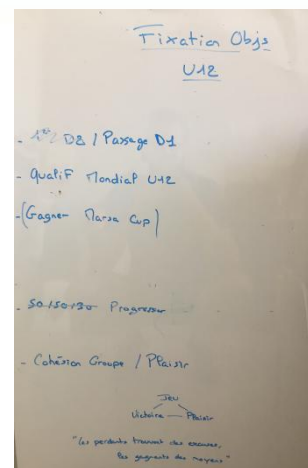 Fixation Objs
U12
- 1er D2 / Passage D1
- Qualif Mondial U12
- (Gagner Marsa Cup)
- 50/50/30 Progresser
- Cohésion Groupe / Plaisir
Jeu
Victoire — Plaisir
"Les perdants trouvent des excuses,
les gagnants des moyens"